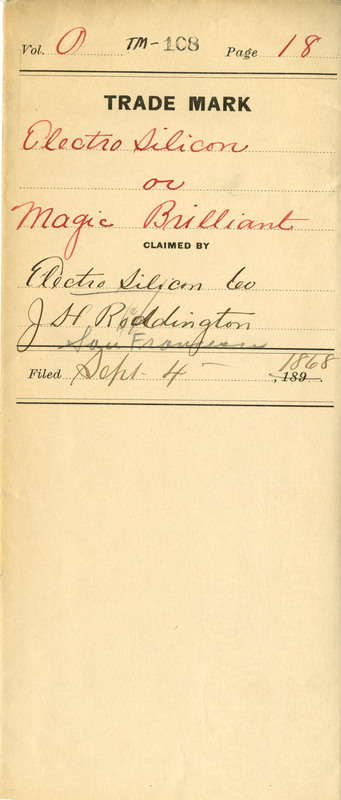 Vol. O TM-108 Page 18
TRADE MARK
Electro Silicon
or
Magic Brilliant
CLAIMED BY
Electro Silicon Co
J H Roddington
San Francisco
Filed Sept. 4 1868, 189